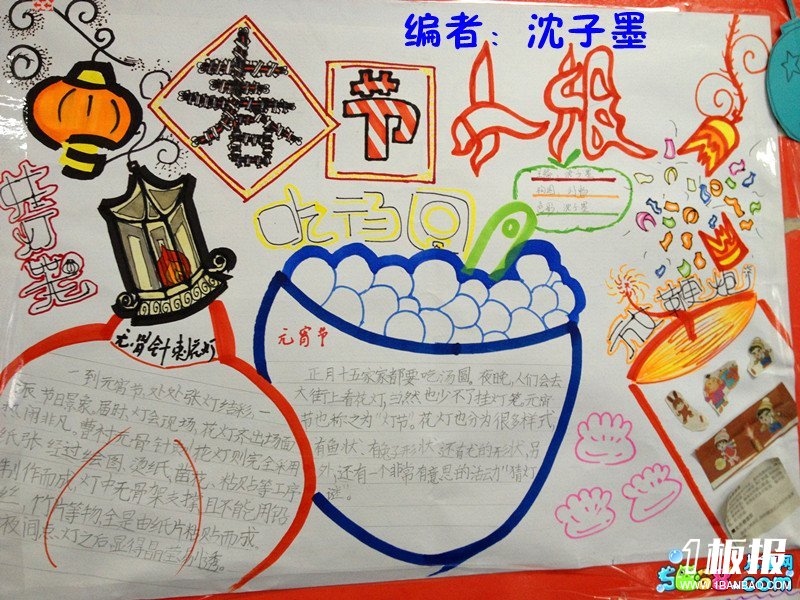 编者：沈子墨
春节小报
挂灯笼
吃汤圆
沈子墨
沈子墨
放鞭炮
无骨针刺花灯
一到元宵节,处处张灯结彩,一
派节日景象。届时,灯会现场,花灯齐出场面
热闹非凡。曹村无骨针刺花灯则完全采用
纸张经过绘图、烫纸、凿花、粘贴等工序
制作而成,灯中无骨架支撑且不能用铅
丝、竹片等物,全是由纸片粘贴而成。
夜间点灯之后显得晶莹剔透。
元宵节
正月十五家家都要吃汤圆。夜晚,人们会去
大街上看花灯,当然也少不了挂灯笼,元宵
节也称之为“灯节”。花灯也分为很多样式,
有鱼状、有兔子形状、还有龙的形状,另
外,还有一个非常有意思的活动“猜灯
谜”。
1板报
WWW.1BANBAO.COM